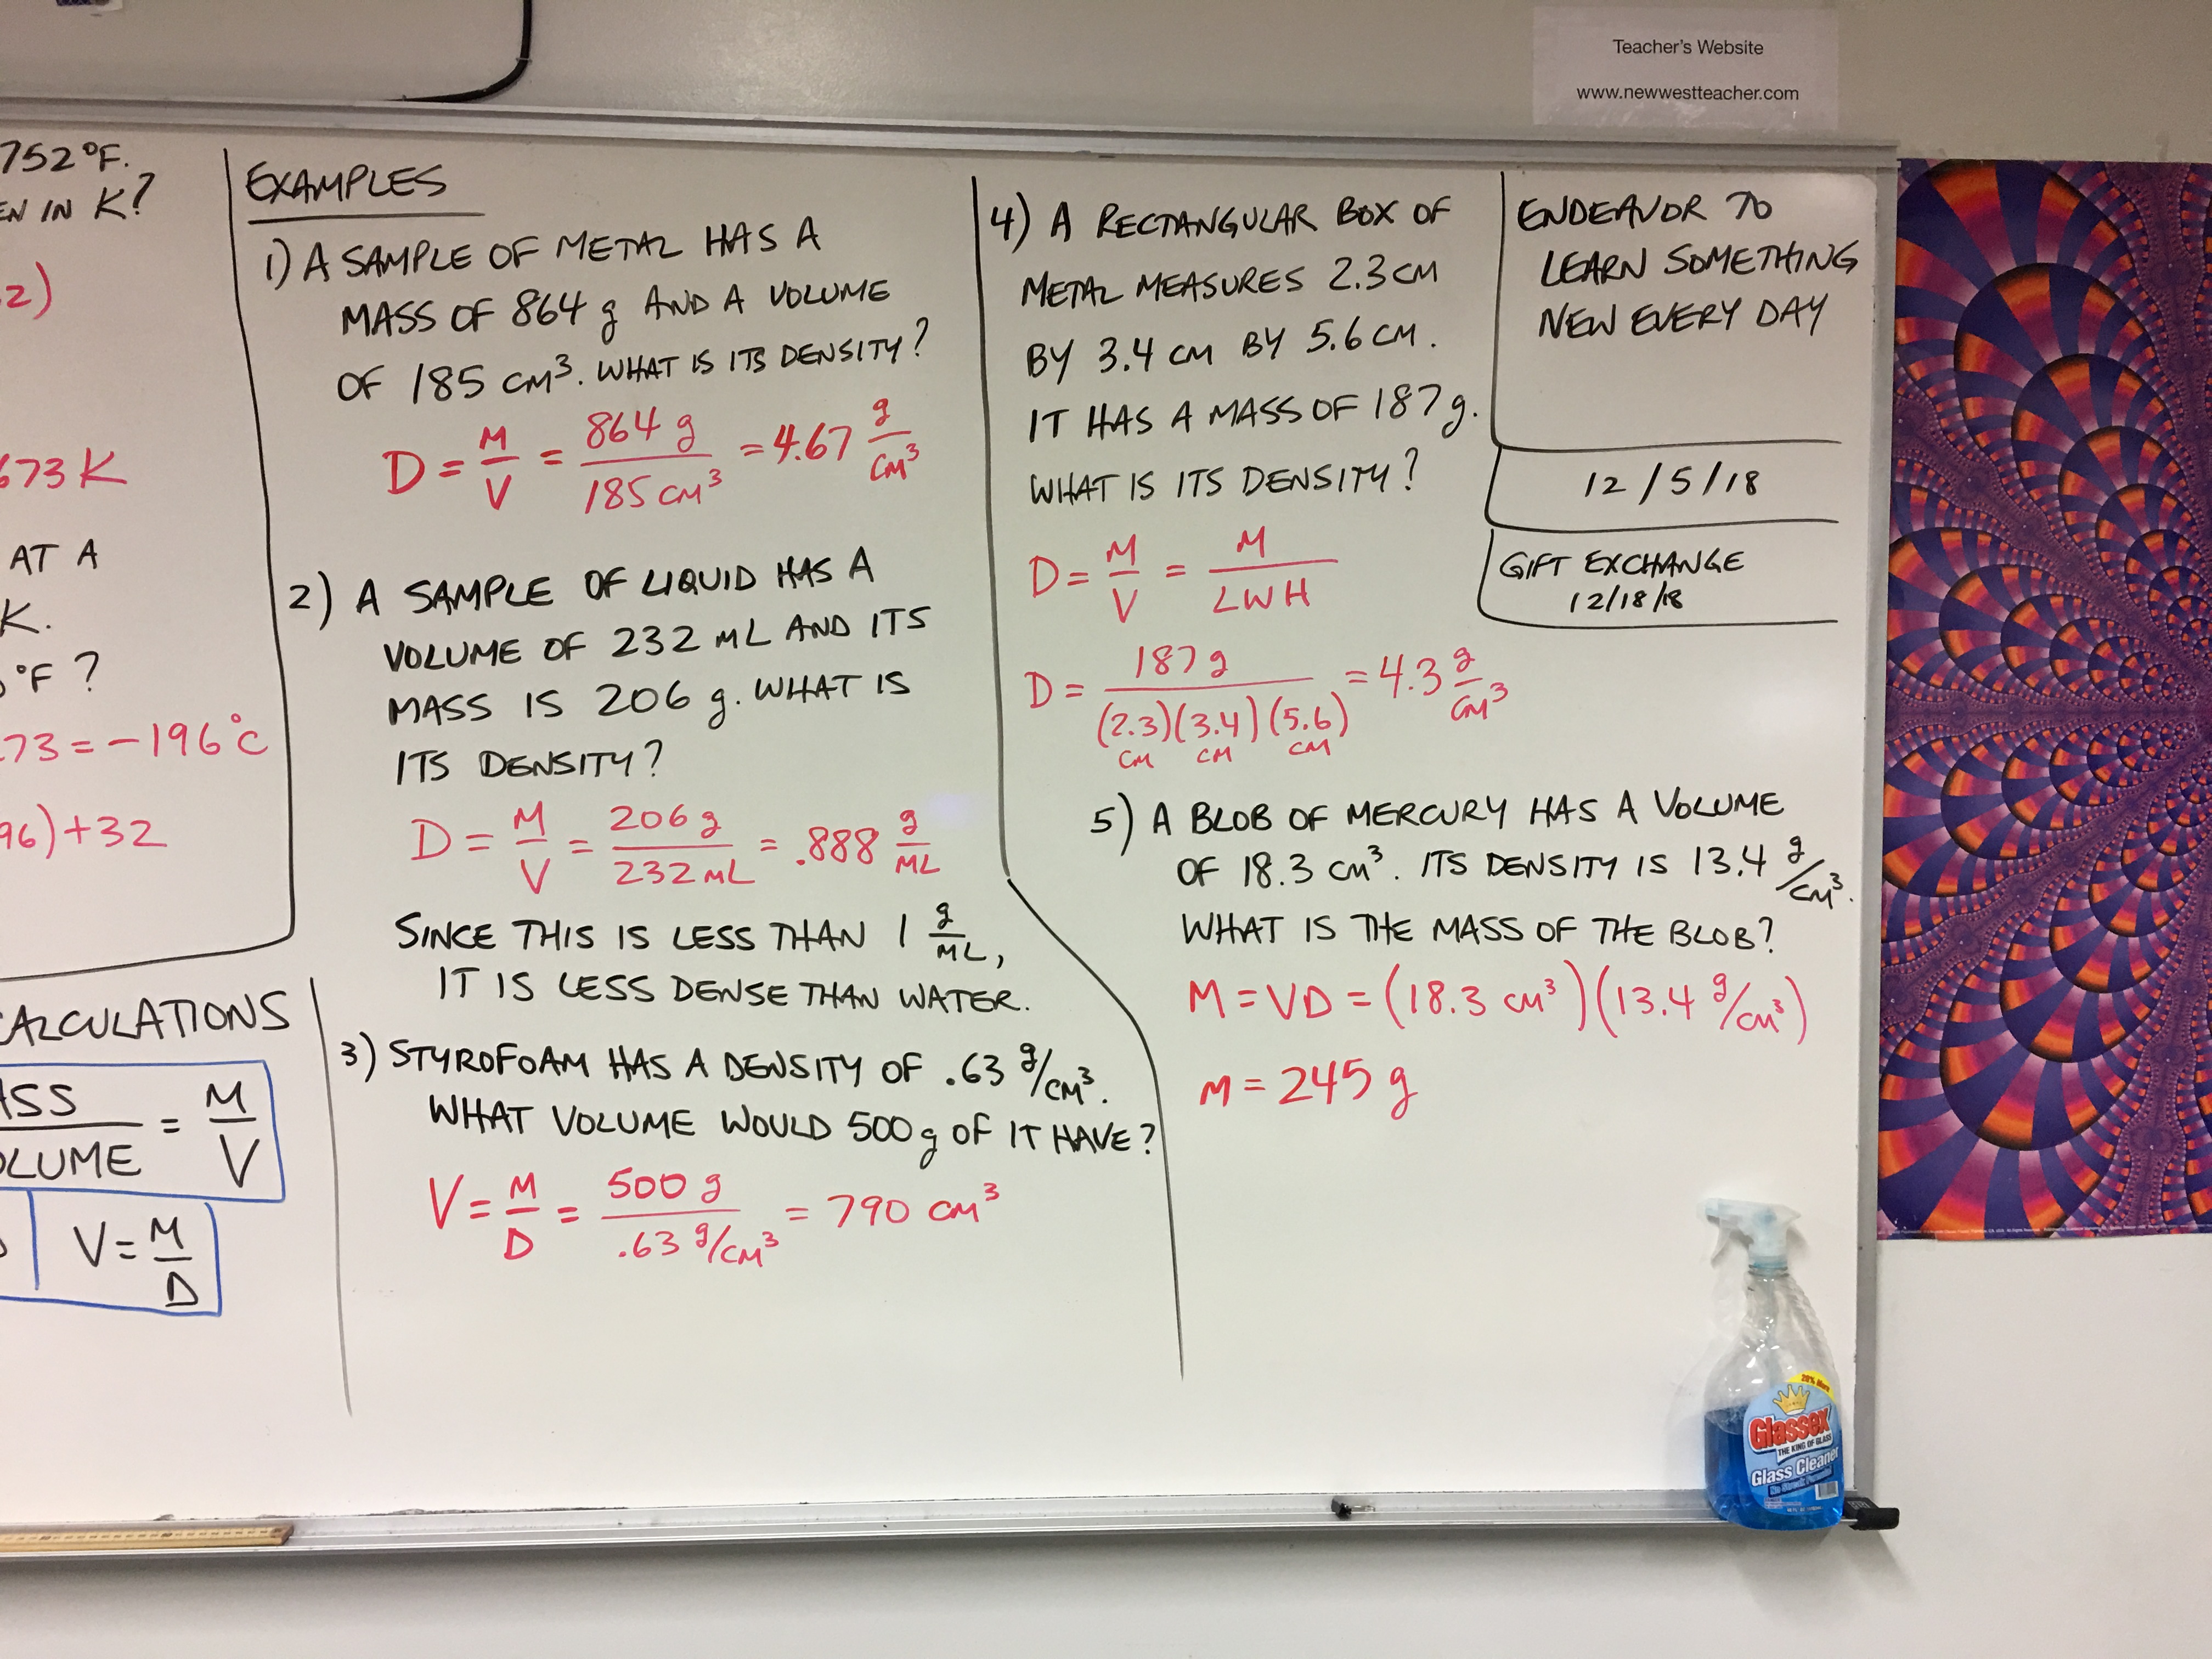 Teacher's Website
www.newwestteacher.com
752°F.
IN K?
2)
673 K
AT A
K.
°F ?
73 = -196°C
96) + 32
CALCULATIONS
ASS
OLUME
= M
V
V = M
D
EXAMPLES
1) A SAMPLE OF METAL HAS A
MASS OF 864 g AND A VOLUME
OF 185 CM³. WHAT IS ITS DENSITY?
D = M/V = 864 g/185 CM³ = 4.67 g/CM³
2) A SAMPLE OF LIQUID HAS A
VOLUME OF 232 ML AND ITS
MASS IS 206 g. WHAT IS
ITS DENSITY?
D = M/V = 206 g/232 ML = .888 g/ML
SINCE THIS IS LESS THAN 1 g/ML,
IT IS LESS DENSE THAN WATER.
3) STYROFOAM HAS A DENSITY OF .63 g/CM³.
WHAT VOLUME WOULD 500 g OF IT HAVE?
V = M/D = 500 g/.63 g/CM³ = 790 CM³
4) A RECTANGULAR BOX OF
METAL MEASURES 2.3 CM
BY 3.4 CM BY 5.6 CM.
IT HAS A MASS OF 187 g.
WHAT IS ITS DENSITY?
D = M/V = M/LWH
D = 187 g/(2.3 CM)(3.4 CM)(5.6 CM) = 4.3 g/CM³
5) A BLOB OF MERCURY HAS A VOLUME
OF 18.3 CM³. ITS DENSITY IS 13.4 g/CM³.
WHAT IS THE MASS OF THE BLOB?
M = VD = (18.3 CM³)(13.4 g/CM³)
M = 245 g
ENDEAVOR TO
LEARN SOMETHING
NEW EVERY DAY
12/5/18
GIFT EXCHANGE
12/18/18
20% More
Glassex
THE KING OF GLASS
Glass Cleaner